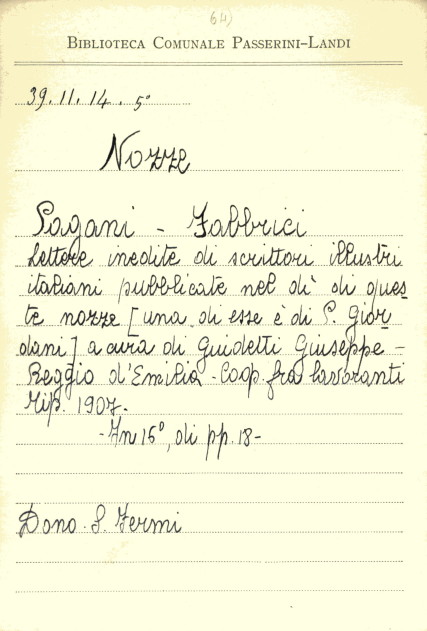 64)
BIBLIOTECA COMUNALE PASSERINI-LANDI
39.11.14.5°
Nozze
Pagani - Fabbrici
Lettere inedite di scrittori illustri
italiani pubblicate nel dì di ques
te nozze [una di esse è di P. Gior
dani] a cura di Guidetti Giuseppe -
Reggio d'Emilia - Coop. fra lavoranti
Tip. 1907.
- In 16°, di pp. 18 -
Dono S. Fermi